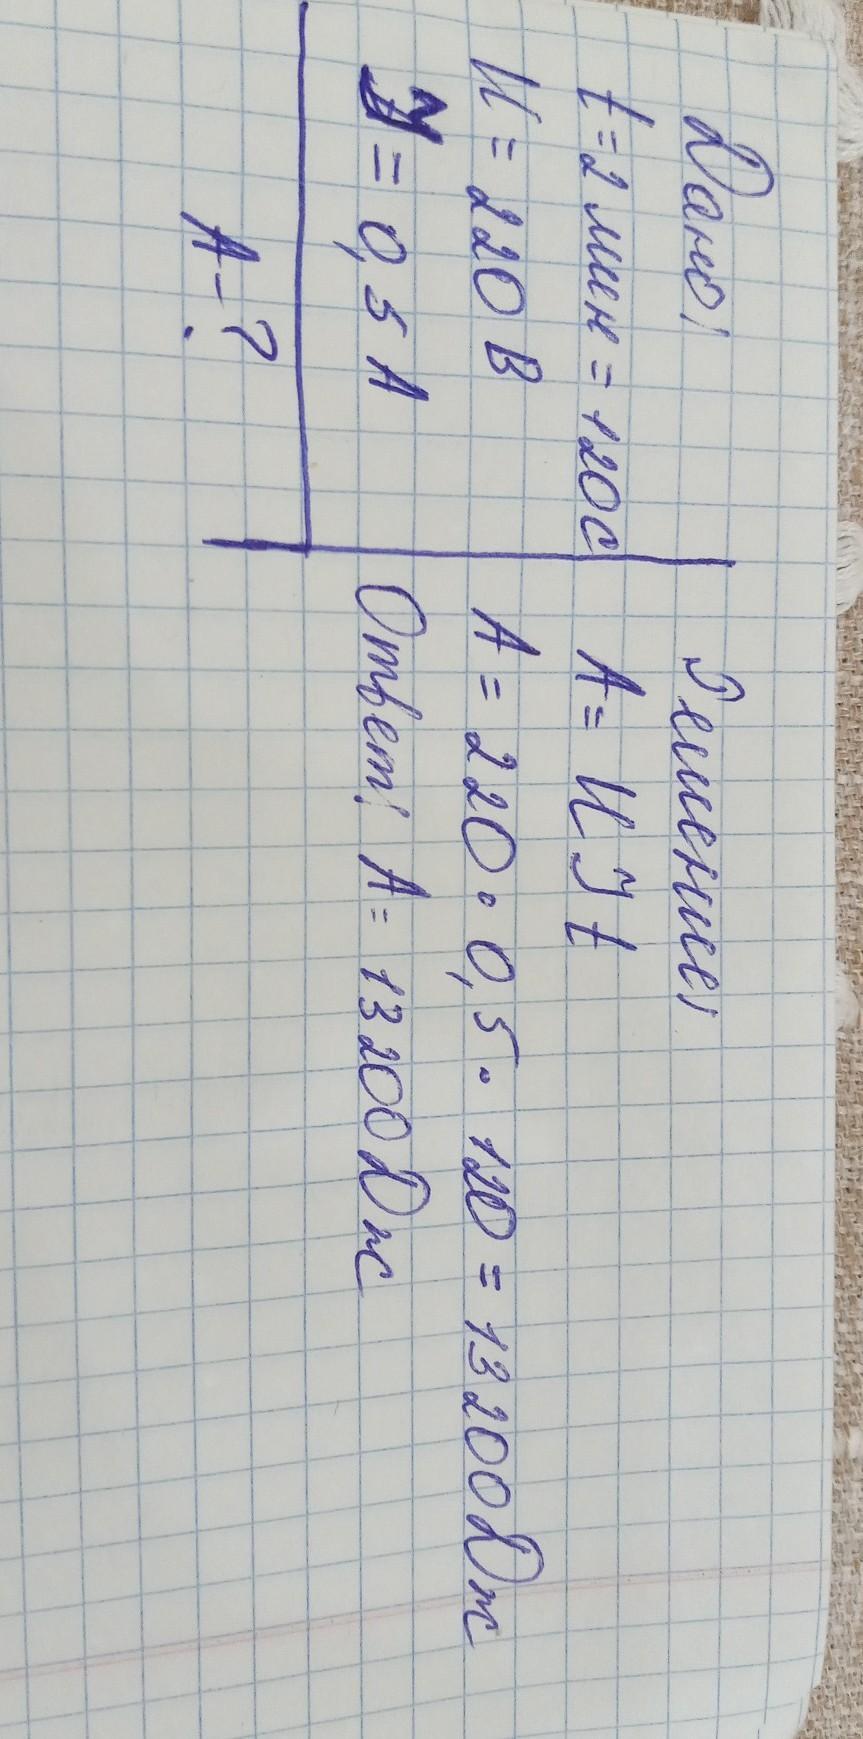 Дано:
t = 2 мин = 120 с
U = 220 В
I = 0,5 А
А - ?
Решение:
A = UIt
A = 220 · 0,5 · 120 = 13200 Дж
Ответ: А = 13200 Дж